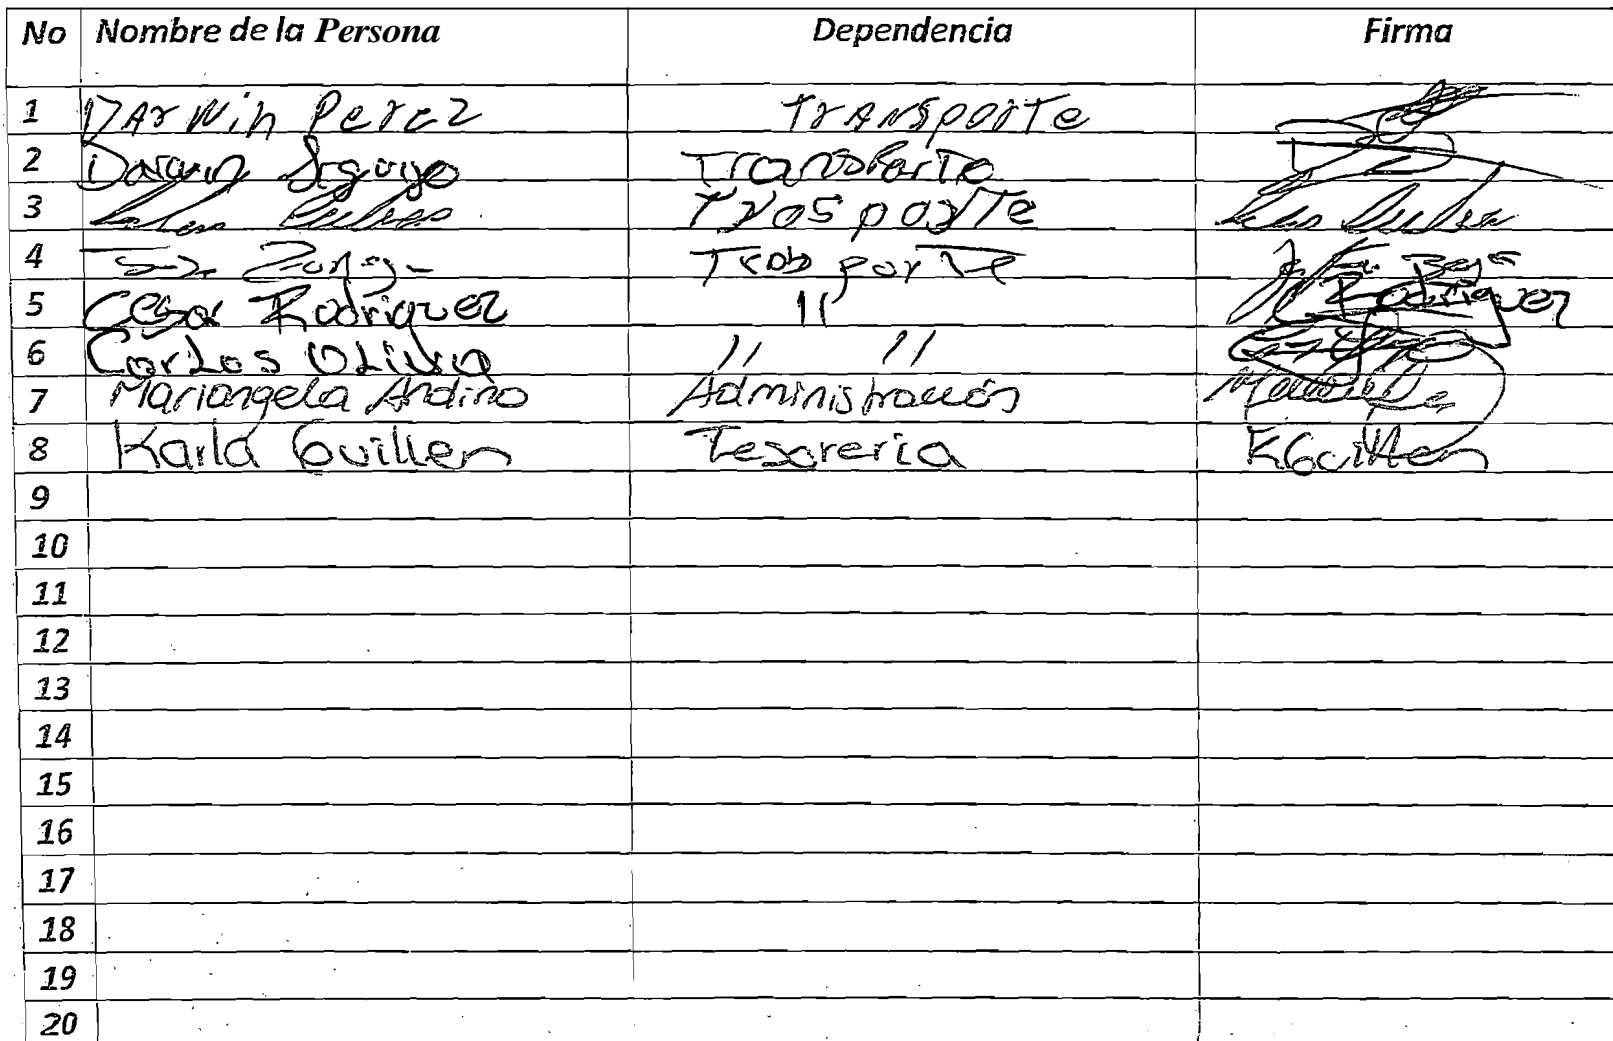 No Nombre de la Persona Dependencia Firma
1 DArWin Perez TrANSporTe
2 Darwin Transporto
3 TrosporTe
4 Trabporte
5 Cesar Rodriguez 11 Rodriguez
6 Carlos Oliva 11 11
7 Mariangela Andino Administración
8 Karla Guillen Tesoreria KGuillen
9
10
11
12
13
14
15
16
17
18
19
20